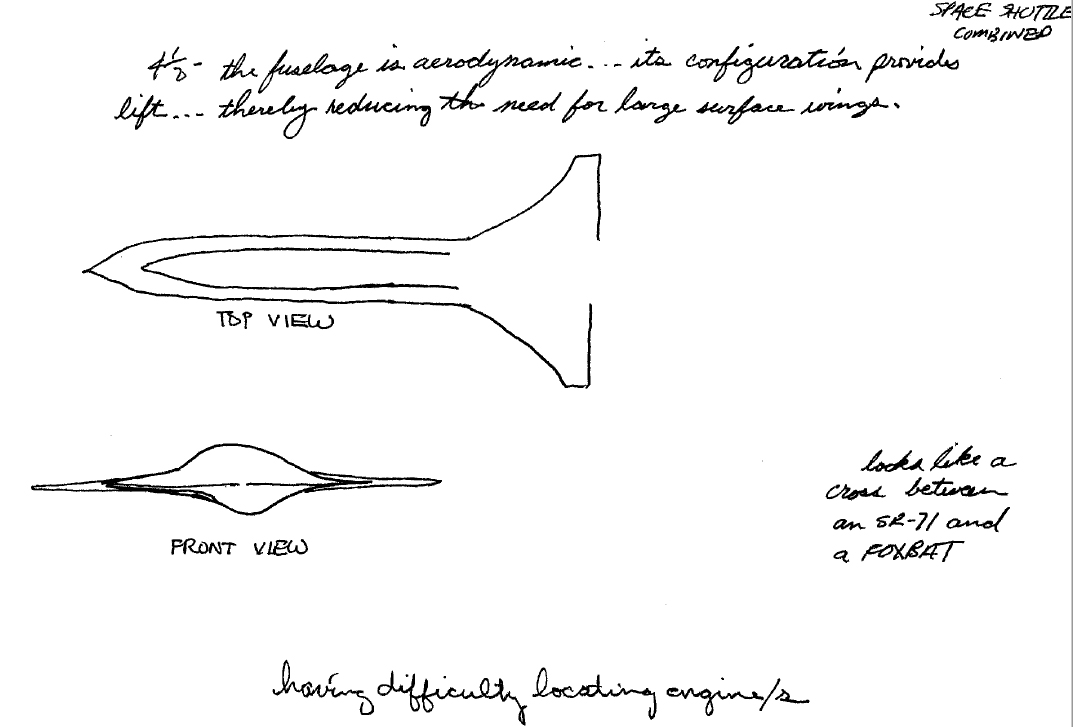 SPACE SHUTTLE
COMBINED
4½- the fuselage is aerodynamic... its configuration provides
lift... thereby reducing the need for large surface wings.
TOP VIEW
FRONT VIEW
looks like a
cross between
an SR-71 and
a FOXBAT
having difficulty locating engine/s